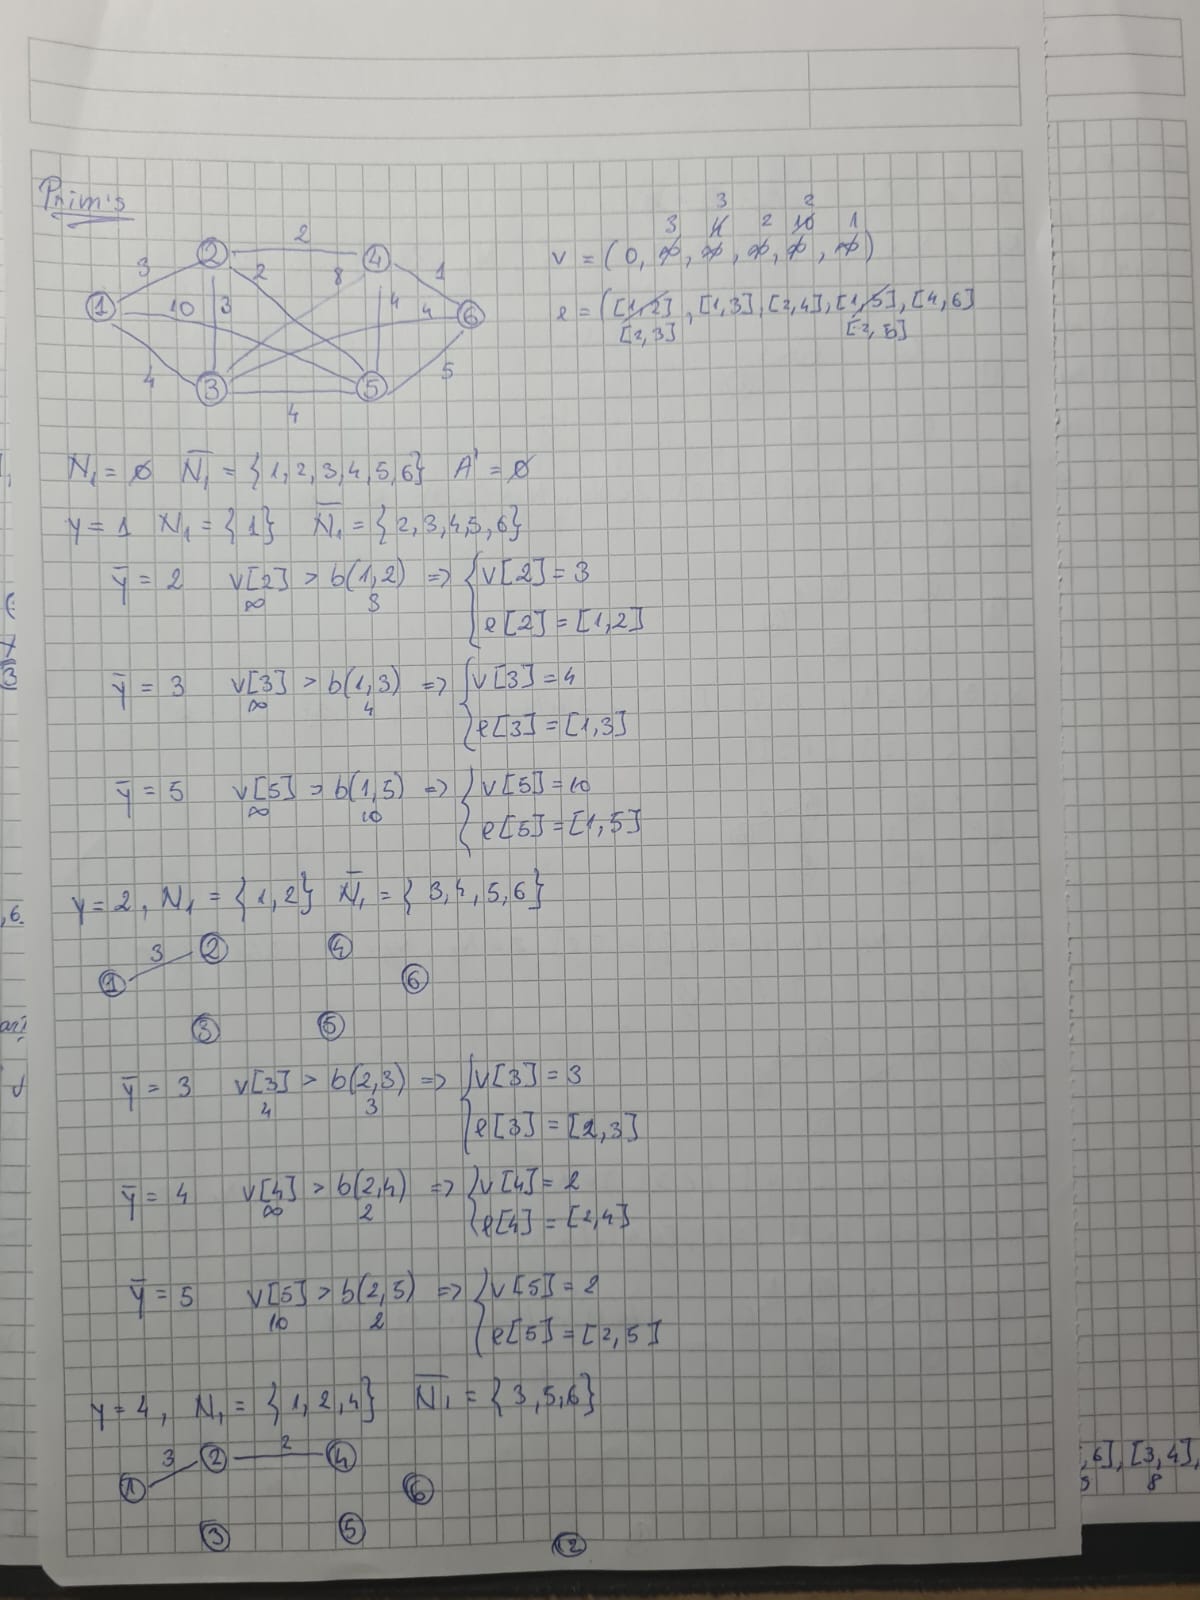 Prim's
3 3 2 2 1
4 10
v = (0, ∞, ∞, ∞, ∞, ∞)
e = ([1,2], [1,3], [2,4], [1,5], [4,6]
[2,3] [2,5]
2
1 2 3 4 5 6
3 2 8 1
10 3 4 4
4 5
4
N₁ = ∅ N̄₁ = {1,2,3,4,5,6} A' = ∅
y = 1 N₁ = {1} N̄₁ = {2,3,4,5,6}
ȳ = 2 v[2] > b(1,2) => { v[2] = 3
∞ 3
e[2] = [1,2]
ȳ = 3 v[3] > b(1,3) => { v[3] = 4
∞ 4
e[3] = [1,3]
ȳ = 5 v[5] > b(1,5) => { v[5] = 10
∞ 10
e[5] = [1,5]
y = 2, N₁ = {1,2} N̄₁ = {3,4,5,6}
3 2 4
1 6
3 5
ȳ = 3 v[3] > b(2,3) => { v[3] = 3
4 3
e[3] = [2,3]
ȳ = 4 v[4] > b(2,4) => { v[4] = 2
∞ 2
e[4] = [2,4]
ȳ = 5 v[5] > b(2,5) => { v[5] = 2
10 2
e[5] = [2,5]
y = 4, N₁ = {1,2,4} N̄₁ = {3,5,6}
3 2 2 4
1 6
3 5
12
,6], [3,4],
8